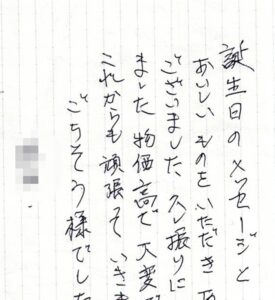 誕生日のメッセージと
おいしいものをいただき
ございました 久し振りに
ました 物価高で大変で
これからも頑張っていきま
ごちそう様でした